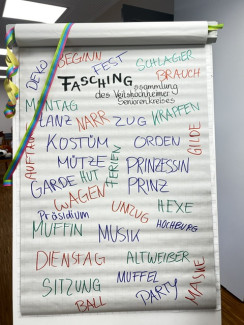 DEKO BEGINN FEST SCHLAGER
BRAUCH
FASCHING
ssammlung
des Veitshöchheimer
Seniorenkreises
MONTAG KRAPFEN
TANZ NARR ZUG
KOSTÜM ORDEN GILDE
AUFTAKT
MÜTZE FERIEN PRINZESSIN
GARDE HUT PRINZ
WAGEN
Präsidium UMZUG HEXE
MUFFIN MUSIK HOCHBURG
DIENSTAG ALTWEIBER
SITZUNG MUFFEL MASKE
BALL PARTY